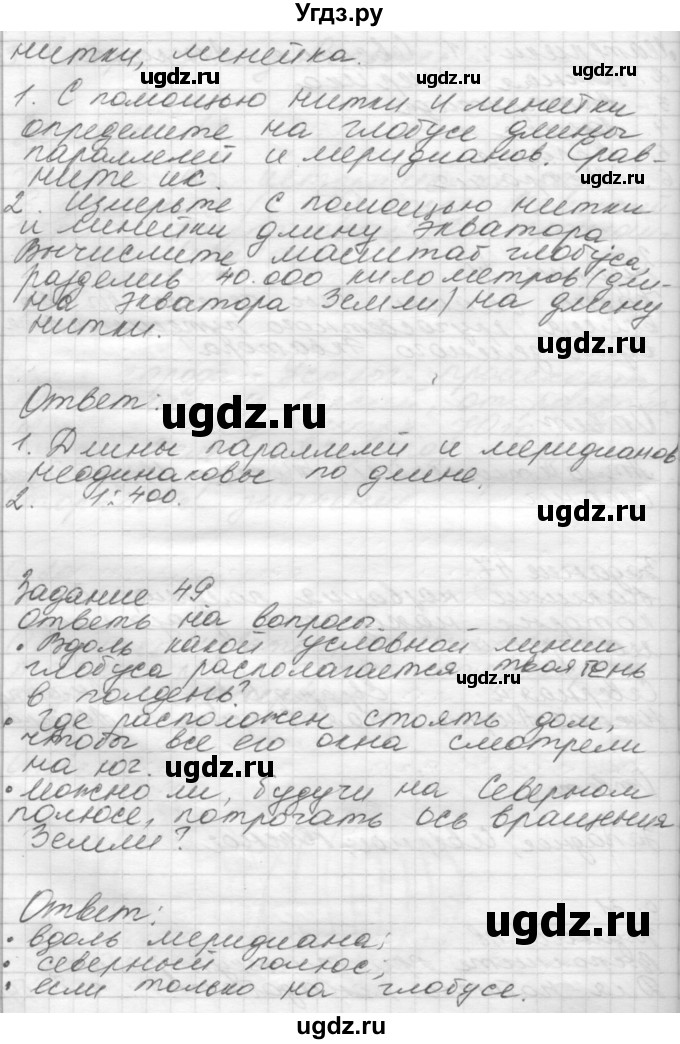 Угдз.ру
нитки, линейка.
ugdz.ru
ugdz.ru
1. С помощью нитки и линейки
определите на глобусе длины
параллелей и меридианов. Срав-
ните их.
2. Измерьте с помощью нитки
и линейки длину экватора.
Вычислите масштаб глобуса,
разделив 40.000 километров (дли-
на экватора Земли) на длину
нитки.
ugdz.ru
Ответ:
ugdz.ru
1. Длины параллелей и меридианов
неодинаковы по длине.
2. 1:400.
ugdz.ru
Задание 49
Ответь на вопросы.
• Вдоль какой условной линии
глобуса располагается твоя тень
в полдень?
ugdz.ru
• Где расположен стоять дом,
чтобы все его окна смотрели
на юг.
ugdz.ru
• Можно ли, будучи на Северном
полюсе, потрогать ось вращения
Земли?
Ответ:
ugdz.ru
• вдоль меридиана;
• северный полюс;
• если только на глобусе.
ugdz.ru